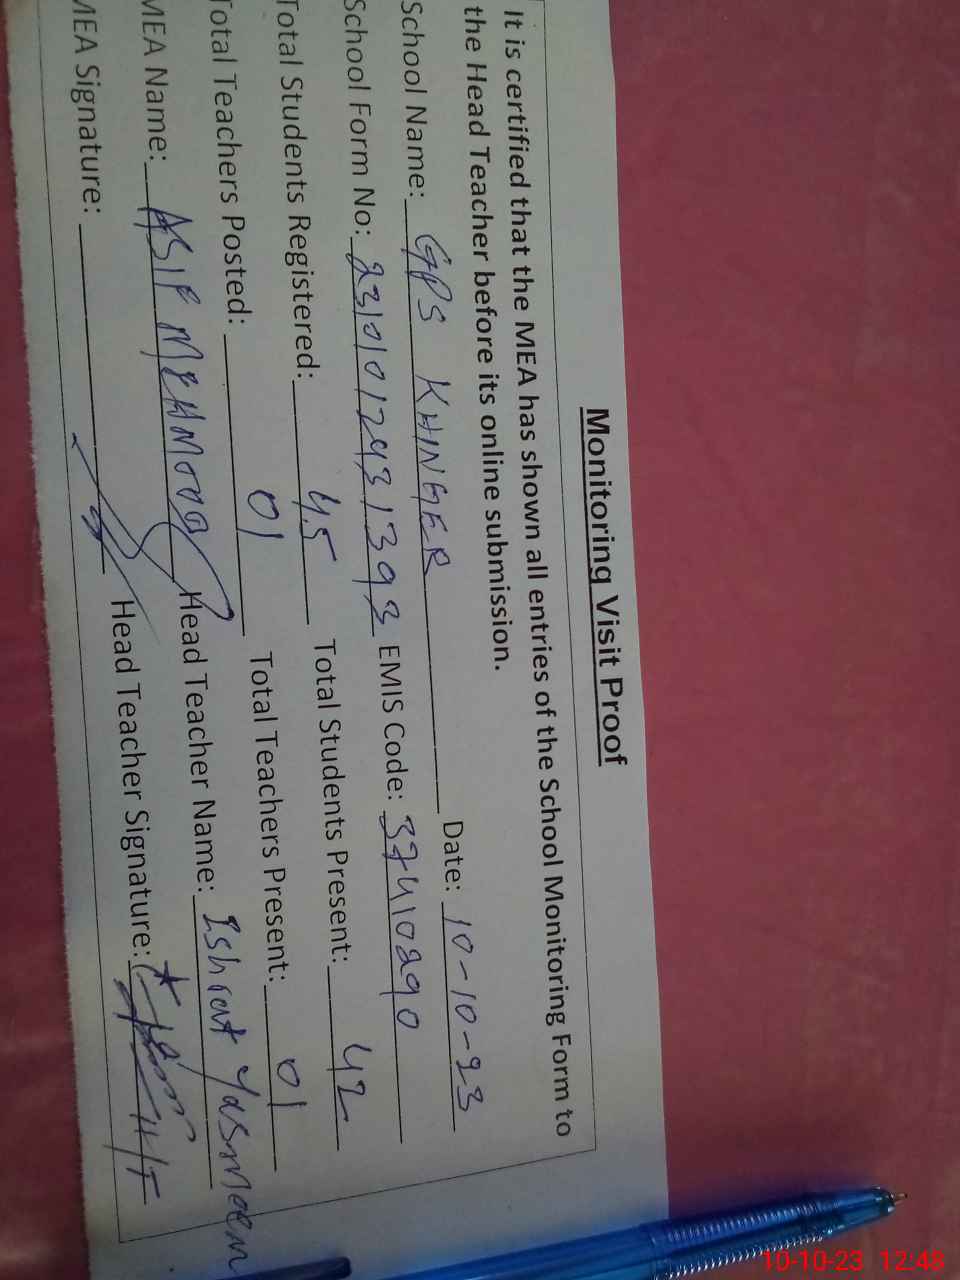 Monitoring Visit Proof
It is certified that the MEA has shown all entries of the School Monitoring Form to
the Head Teacher before its online submission.
School Name: GPS KHINGER Date: 10-10-23
School Form No: 23101012931393 EMIS Code: 37410290
Total Students Registered: 45 Total Students Present: 42
Total Teachers Posted: 01 Total Teachers Present: 01
MEA Name: ASIF MEHMOOD Head Teacher Name: Ishrat Yasmeen
MEA Signature: Head Teacher Signature:
10-10-23 12:48